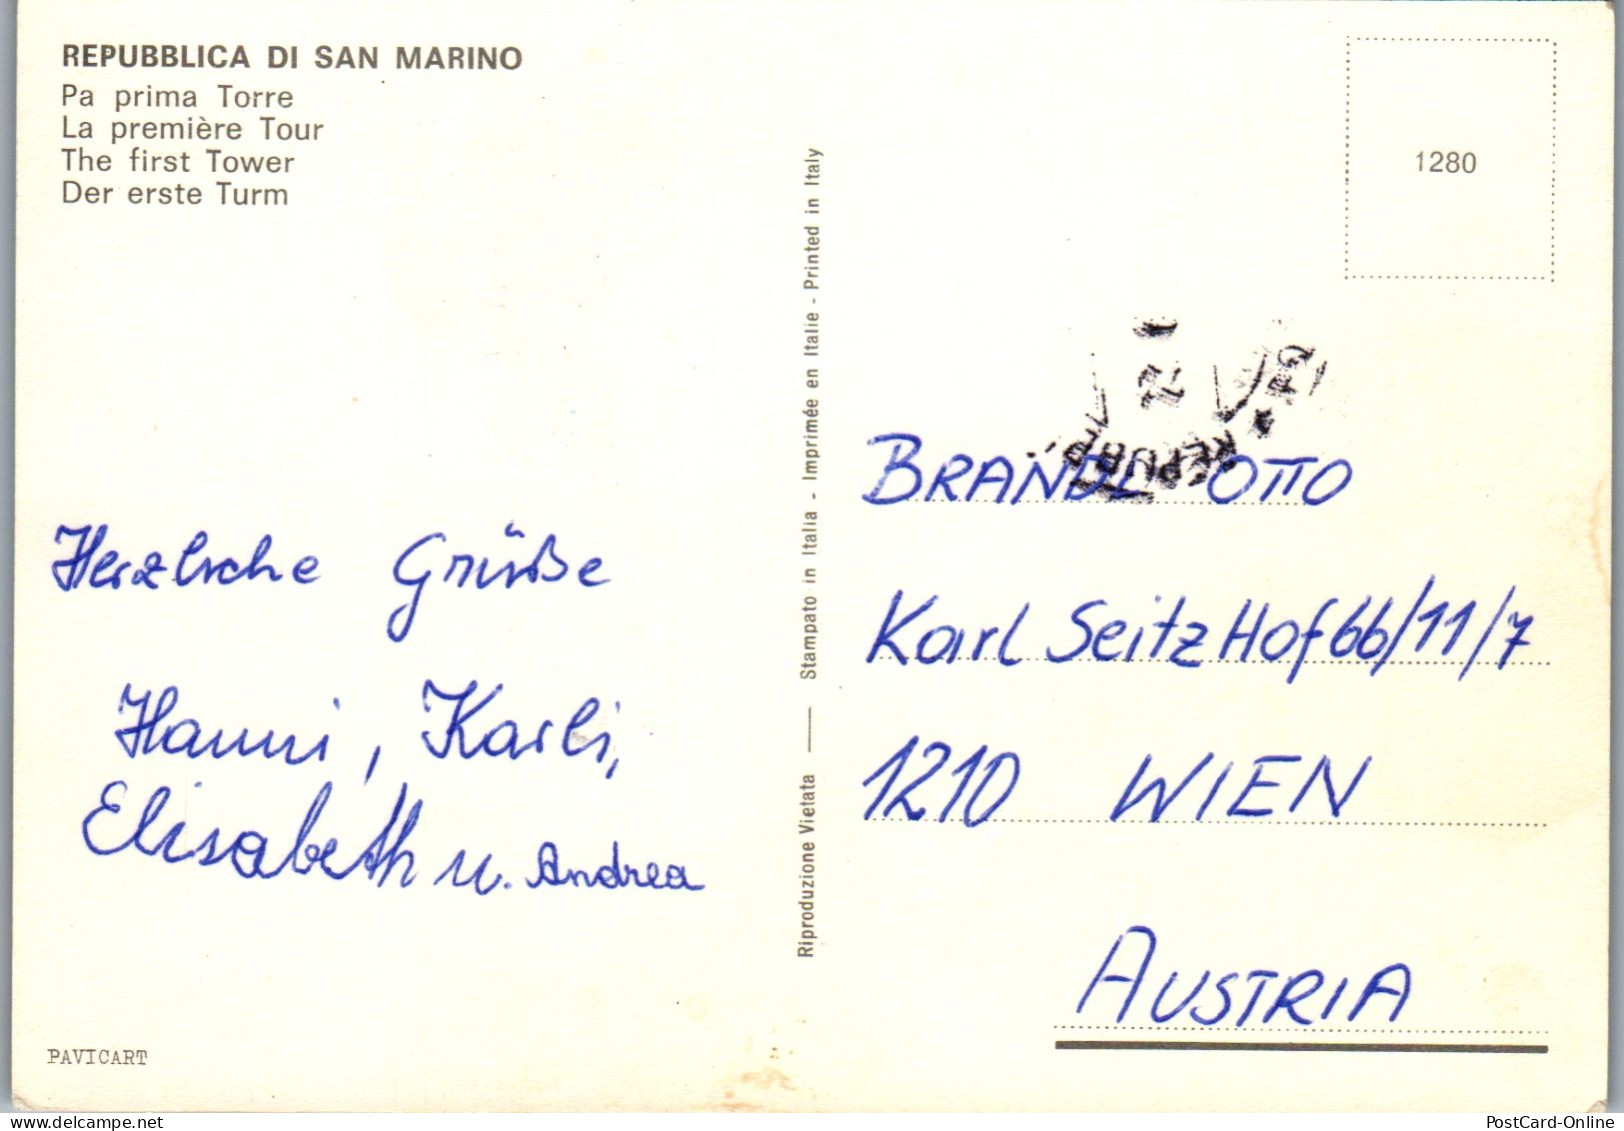 REPUBBLICA DI SAN MARINO
Pa prima Torre
La première Tour
The first Tower
Der erste Turm
1280
Herzliche Grüße
Hanni, Karli,
Elisabeth u. Andrea
PAVICART
Riproduzione Vietata — Stampato in Italia - Imprimée en Italie - Printed in Italy
REPUBB
BRANDL OTTO
Karl Seitz Hof 66/11/7
1210 WIEN
AUSTRIA
PostCard-Online